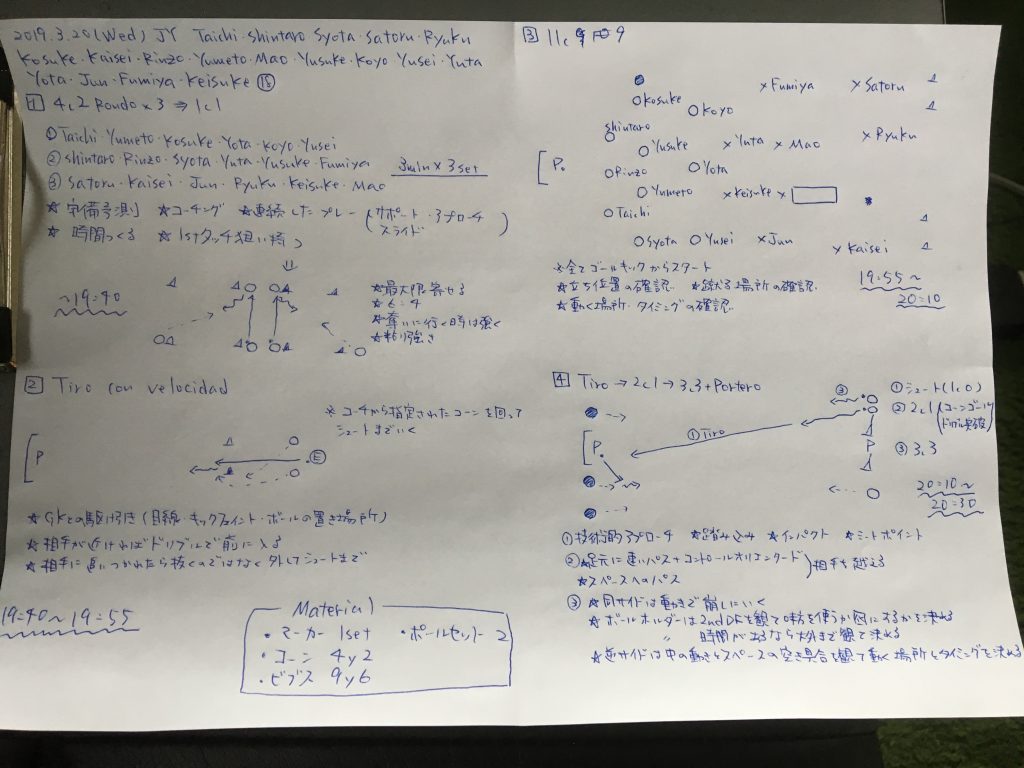 2019.3.20(Wed) JY Taichi・Shintaro Syota・Satoru・Ryuku
Kosuke・Kaisei・Rinzo・Yumeto・Mao・Yusuke・Koyo・Yusei・Yuta
Yota・Jun・Fumiya・Keisuke ⑱
1 4c2 Rondo × 3 ⇒ 1c1
①Taichi・Yumeto・Kosuke・Yota・Koyo・Yusei
②Shintaro・Rinzo・Syota・Yuta・Yusuke・Fumiya 3min × 3set
③Satoru・Kaisei・Jun・Ryuku・Keisuke・Mao
☆守備予測 ☆コーチング ☆連続したプレー(サポート・アプローチ
スライド)
☆時間つくる ☆1stタッチ狙い持つ
~19:40
☆最大限寄せる
☆6:4
☆奪いに行く時は強く
☆粘り強さ
2 Tiro con velocidad
※コーチから指定されたコーンを回って
シュートまでいく
P
E
☆GKとの駆け引き(目線・キックフェイント・ボールの置き場所)
☆相手が近ければドリブルで前に入る
☆相手に追いつかれたら抜くのではなく外してシュートまで
19:40~19:55
Material
・マーカー 1set ・ボールセット 2
・コーン 4y2
・ビブス 9y6
3 11c 9
Kosuke
Koyo
×Fumiya
×Satoru
Shintaro
Yusuke
×Yuta
×Mao
×Ryuku
P
Rinzo
Yota
Yumeto
×Keisuke
×
Taichi
Syota
Yusei
×Jun
×Kaisei
☆全てゴールキックからスタート
☆立ち位置の確認 ☆空ける場所の確認
☆動く場所・タイミングの確認
19:55~
20:10
4 Tiro → 2c1 → 3.3 + Portero
③
①シュート(1c0)
②2c1(コーンゴール
ドリブル突破)
③3.3
①Tiro
P
P
20:10~
20:30
①技術的アプローチ ☆踏み込み ☆インパクト ☆ミートポイント
②☆足元に速いパス+コントロールオリエンタード
☆スペースへのパス
相手を越える
③☆同サイドは動きで崩しにいく
☆ボールホルダーは2ndDFを観て味方を使うか囮にするかを決める
〃 時間があるなら大外まで観て決める
☆逆サイドは中の動きとスペースの空き具合を観て動く場所とタイミングを決める